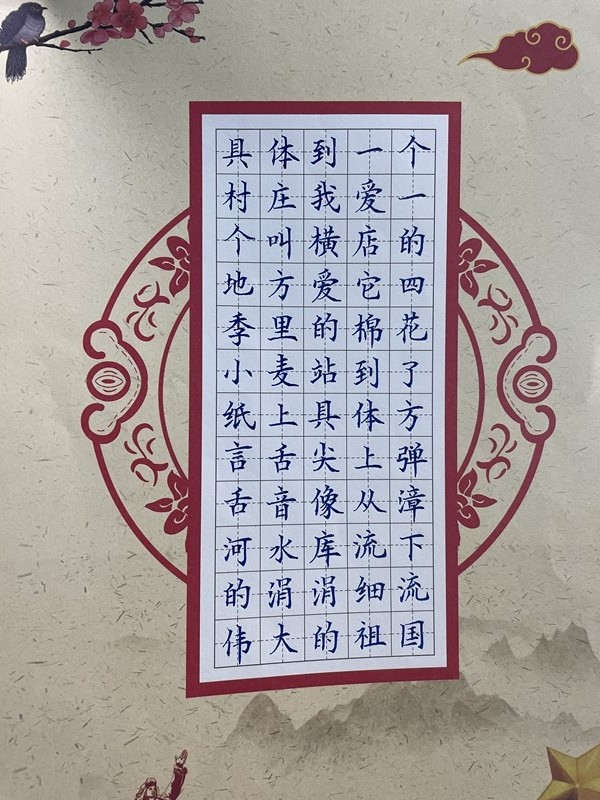 具体到一个
村庄我爱一
个叫横店的
地方爱它四
季里的棉花
小麦站到了
纸上具体方
言舌尖上弹
舌音像从漳
河水库流下
的涓涓细流
伟大的祖国